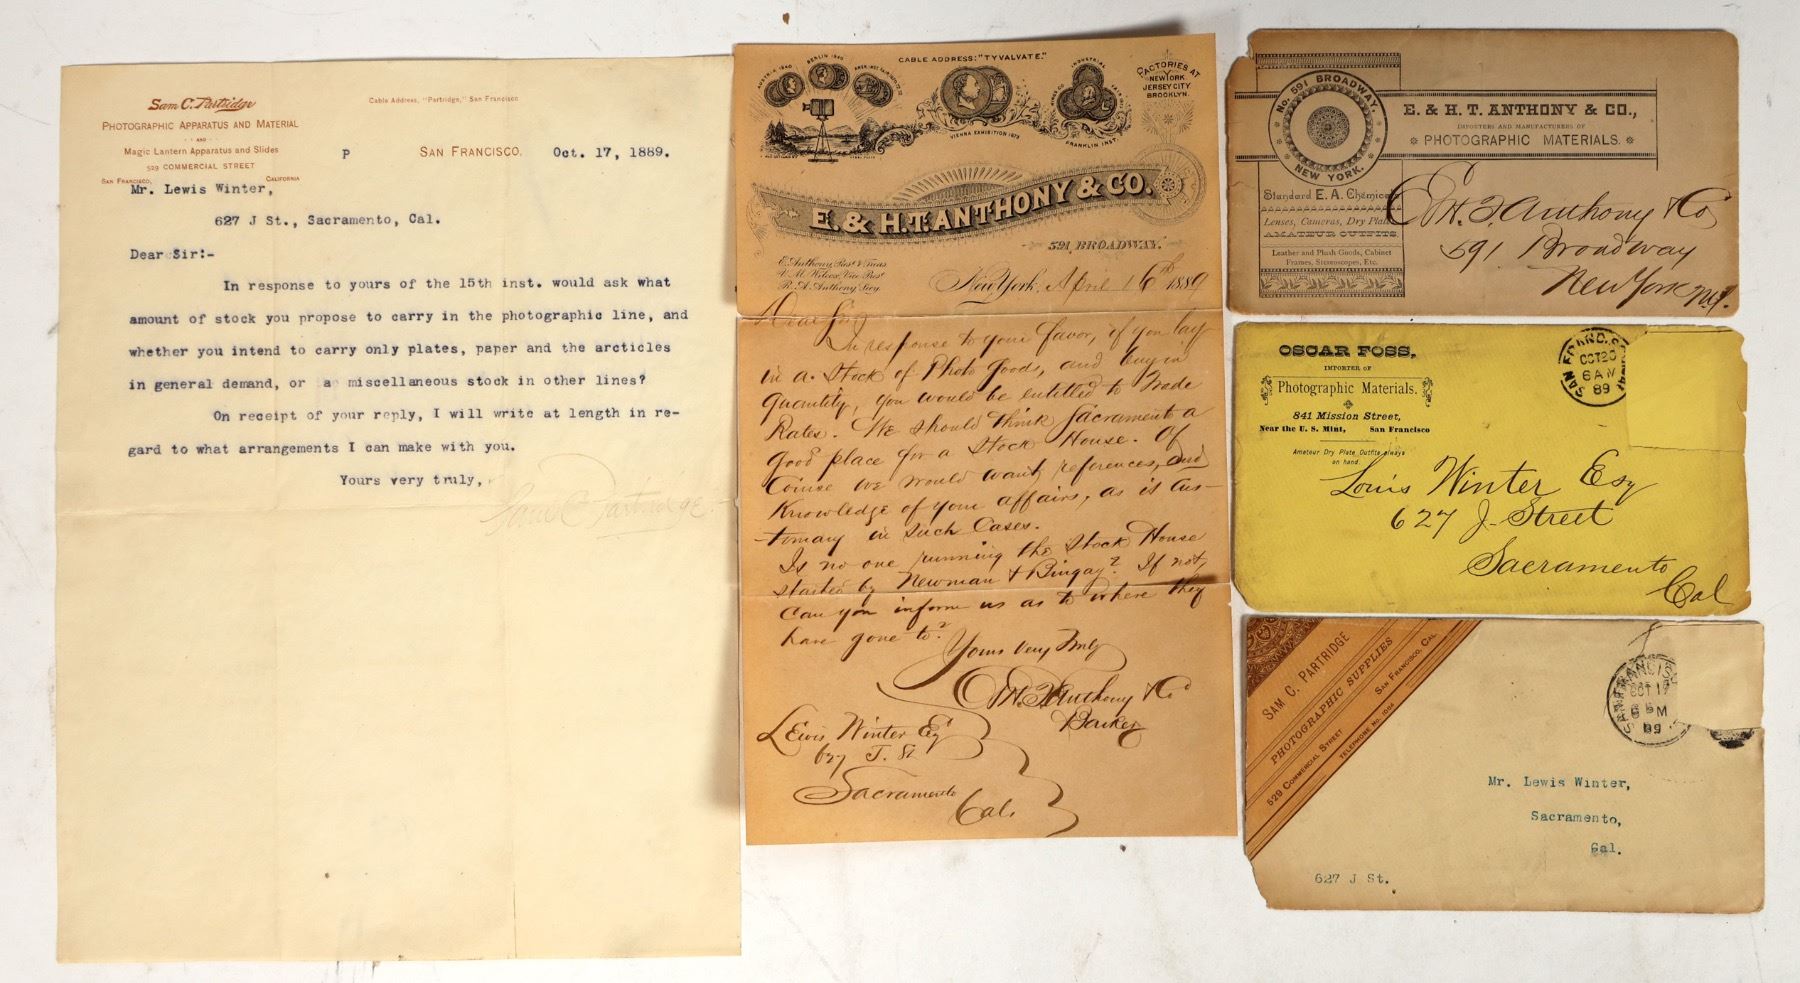 Sam C. Partridge
PHOTOGRAPHIC APPARATUS AND MATERIAL
AND
Magic Lantern Apparatus and Slides
529 COMMERCIAL STREET
SAN FRANCISCO, CALIFORNIA
Cable Address, "Partridge," San Francisco
P SAN FRANCISCO, Oct. 17, 1889.
Mr. Lewis Winter,
627 J St., Sacramento, Cal.
Dear Sir:-
In response to yours of the 15th inst. would ask what
amount of stock you propose to carry in the photographic line, and
whether you intend to carry only plates, paper and the arcticles
in general demand, or a miscellaneous stock in other lines?
On receipt of your reply, I will write at length in re-
gard to what arrangements I can make with you.
Yours very truly,
Sam C Partridge
CABLE ADDRESS: "TYVALVATE."
AUSTRIA 1840
BERLIN 1840
VIENNA EXHIBITION 1873
INDUSTRIAL
FRANKLIN INST.
FACTORIES AT
NEW YORK
JERSEY CITY
BROOKLYN.
E. & H.T. ANTHONY & CO.
591 BROADWAY.
E. Anthony, Prest & Treas
V. M. Wilcox, Vice Prest
R. A. Anthony, Secy
New York, April 16th 1889
Dear Sir
In response to your favor, if you lay
in a stock of Photo Goods, and buy in
quantity, you would be entitled to Trade
Rates. We should think Sacramento a
good place for a Stock House. Of
Course we would want references, and
knowledge of your affairs, as is cus-
tomary in such cases.
Is no one running the Stock House
started by Newman & Bingay? If not,
can you inform us as to where they
have gone to?
Yours Very Truly
E & H. T. Anthony & Co
Lewis Winter Esq
627 J. St
Sacramento
Cal.
No. 591 BROADWAY.
NEW YORK.
E. & H. T. ANTHONY & CO.,
IMPORTERS AND MANUFACTURERS OF
PHOTOGRAPHIC MATERIALS.
Standard E. A. Chemica
Lenses, Cameras, Dry Plat
AMATEUR OUTFITS.
Leather and Plush Goods, Cabinet
Frames, Stereoscopes, Etc.
E & H. T. Anthony & Co
591 Broadway
New York N.Y.
OSCAR FOSS,
IMPORTER OF
Photographic Materials,
841 Mission Street,
Near the U. S. Mint, San Francisco
Amateur Dry Plate Outfits always
on hand.
SAN FRANC
OCT 20
6 AM
89
Louis Winter Esq
627 J. Street
Sacramento
Cal
SAM C. PARTRIDGE
PHOTOGRAPHIC SUPPLIES
529 COMMERCIAL STREET SAN FRANCISCO, CAL
TELEPHONE No.
SAN FRANCISCO
OCT 17
M
89
Mr. Lewis Winter,
Sacramento,
Cal.
627 J St.